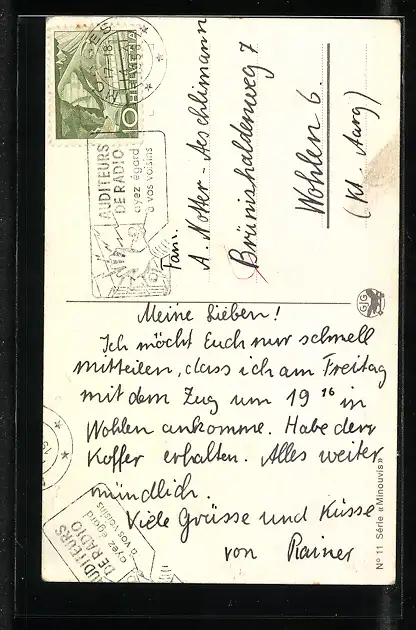 Meine Lieben!
Ich möcht Euch nur schnell
mitteilen, dass ich am Freitag
mit dem Zug um 19 16 in
Wohlen ankomme. Habe den
Koffer erhalten. Alles weiter
mündlich.
Viele Grüsse und Küsse
von Rainer
Fam.
A. Notter-Aeschlimann
Brünishaldenweg 7
Wohlen 6.
(Kt. Aarg)
HELVETIA
10
MORGES
AUDITEURS
DE RADIO
ayez égard
à vos voisins
AUDITEURS
DE RADIO
ayez égard
à vos voisins
No 11 Série «Minouvis»